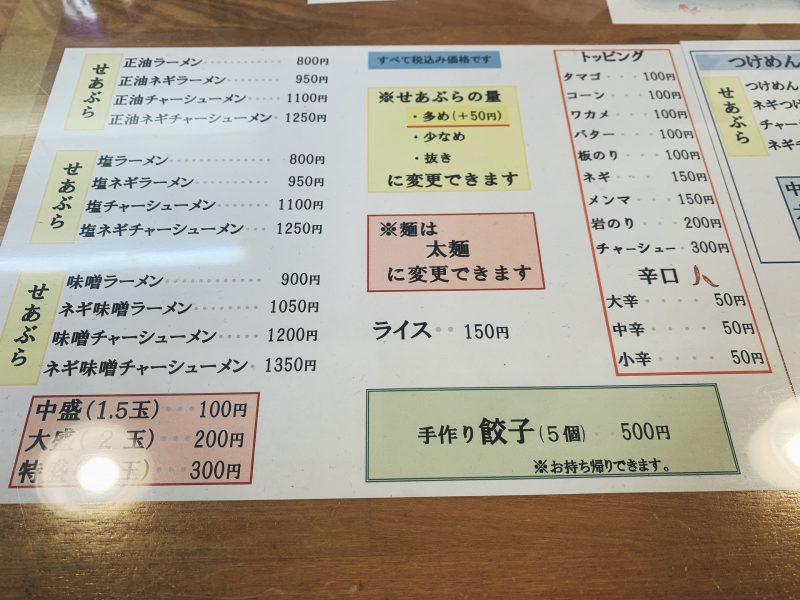 せあぶら
正油ラーメン 800円
正油ネギラーメン 950円
正油チャーシューメン 1100円
正油ネギチャーシューメン 1250円
せあぶら
塩ラーメン 800円
塩ネギラーメン 950円
塩チャーシューメン 1100円
塩ネギチャーシューメン 1250円
せあぶら
味噌ラーメン 900円
ネギ味噌ラーメン 1050円
味噌チャーシューメン 1200円
ネギ味噌チャーシューメン 1350円
中盛(1.5玉) 100円
大盛(2玉) 200円
特 玉) 300円
すべて税込み価格です
※せあぶらの量
・多め(+50円)
・少なめ
・抜き
に変更できます
※麺は
太麺
に変更できます
ライス 150円
手作り餃子(5個) 500円
※お持ち帰りできます。
トッピング
タマゴ 100円
コーン 100円
ワカメ 100円
バター 100円
板のり 100円
ネギ 150円
メンマ 150円
岩のり 200円
チャーシュー 300円
辛口
大辛 50円
中辛 50円
小辛 50円
つけめん
せあぶら
つけめん
ネギつけ
チャー
ネギ
中